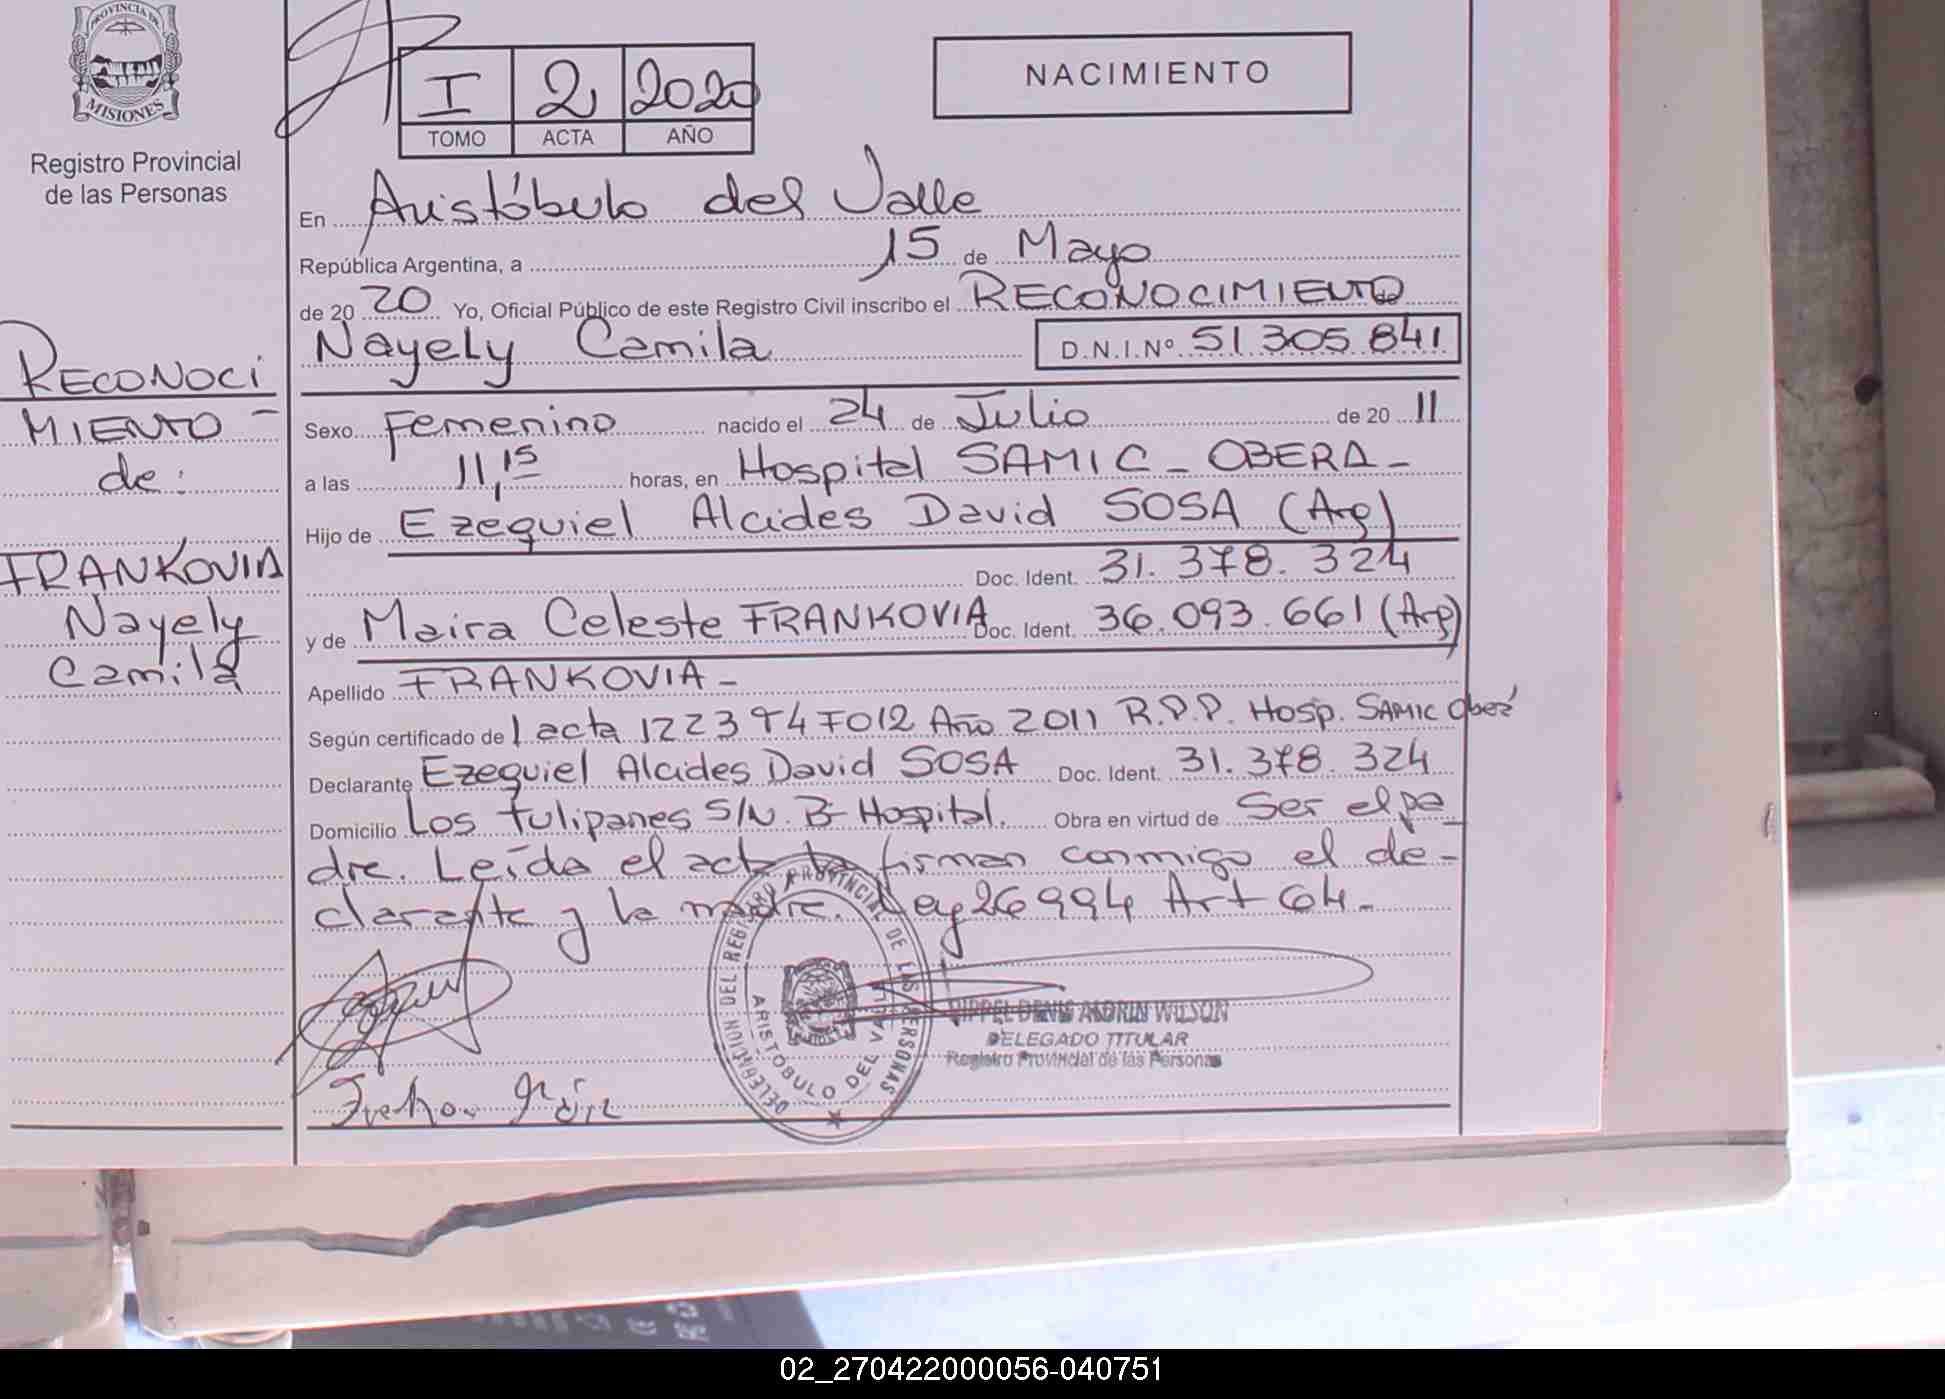 PROVINCIA DE
MISIONES
Registro Provincial
de las Personas
RECONOCI
MIENTO -
de:
FRANKOVIA
Nayely
Camila
I 2 2020
TOMO ACTA AÑO
NACIMIENTO
En Aristóbulo del Valle
República Argentina, a 15 de Mayo
de 20 20 Yo, Oficial Público de este Registro Civil inscribo el RECONOCIMIENTO de
Nayely Camila D.N.I.Nº 51.305.841
Sexo Femenino nacido el 24 de Julio de 20 11
a las 11,15 horas, en Hospital SAMIC - OBERA -
Hijo de Ezequiel Alcides David SOSA (Arg)
Doc. Ident. 31.378.324
y de Maira Celeste FRANKOVIA Doc. Ident. 36.093.661 (Arg)
Apellido FRANKOVIA -
Según certificado de 1 acta 1223 T4 F012 Año 2011 R.P.P. Hosp. SAMIC Oberá
Declarante Ezequiel Alcides David SOSA Doc. Ident. 31.378.324
Domicilio Los tulipanes S/N. Bº Hospital. Obra en virtud de Ser el pa
dre. Leída el acta la firman conmigo el de-
clarante y la madre. Ley 26994 Art 64.-
DELEGACION DEL REGISTRO PROVINCIAL DE LAS PERSONAS
ARISTOBULO DEL VALLE
DENIS ALDRIN WILSON
DELEGADO TITULAR
Registro Provincial de las Personas
02_270422000056-040751